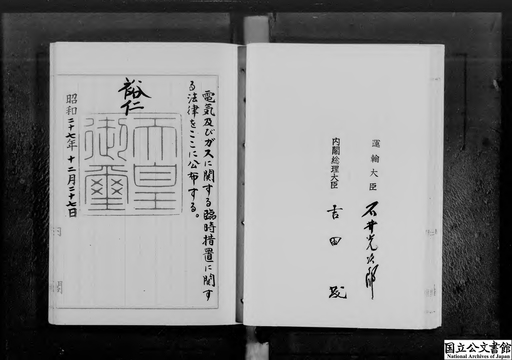 運輸大臣
石井光次郎
内閣総理大臣
吉田茂
電気及びガスに関する臨時措置に関す
る法律をここに公布する。
裕仁
天皇
御璽
昭和二十七年十二月二十七日
国立公文書館
National Archives of Japan